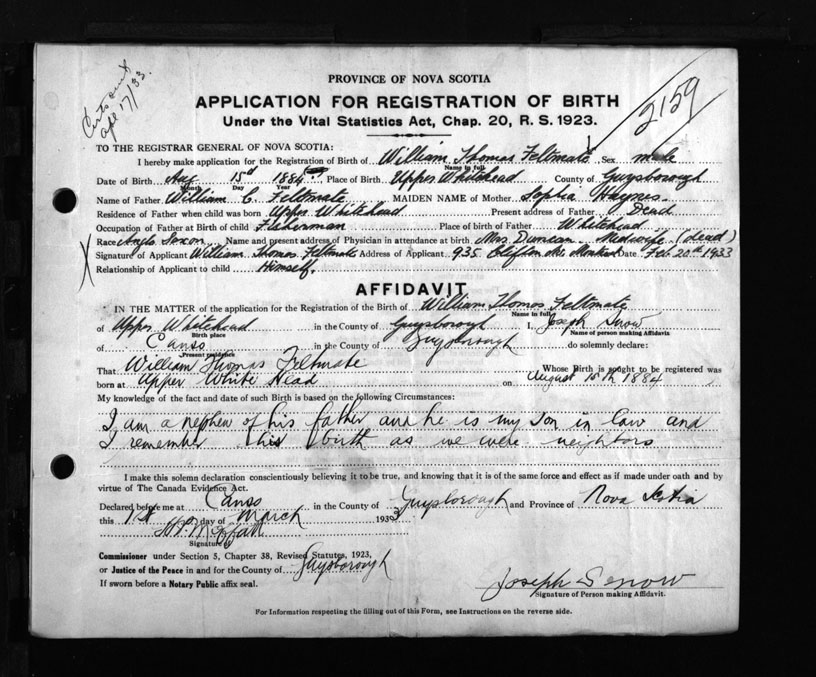 Certs sent
Apl 17/33.
2159
PROVINCE OF NOVA SCOTIA
APPLICATION FOR REGISTRATION OF BIRTH
Under the Vital Statistics Act, Chap. 20, R. S. 1923.
TO THE REGISTRAR GENERAL OF NOVA SCOTIA:
I hereby make application for the Registration of Birth of William Thomas Feltmate Sex male
Name in full
Date of Birth Aug 15th 1884 Place of Birth Upper Whitehead County of Guysborough
Month Day Year
Name of Father William C. Feltmate MAIDEN NAME of Mother Sophia Haynes
Residence of Father when child was born Upper Whitehead Present address of Father Dead
Occupation of Father at Birth of child Fisherman Place of birth of Father Whitehead
Race Anglo Saxon Name and present address of Physician in attendance at birth Mrs Duncan - Midwife (dead)
Signature of Applicant William Thomas Feltmate Address of Applicant 935 Clifton Date Feb. 20th 1933
Relationship of Applicant to child Himself.
AFFIDAVIT
IN THE MATTER of the application for Registration of the Birth of William Thomas Feltmate
Name in full
of Upper Whitehead in the County of Guysborough I, Joseph Snow
Birth place Name of person making Affidavit
of Canso in the County of Guysborough do solemnly declare:
Present residence
That William Thomas Feltmate Whose Birth is sought to be registered was
born at Upper White Head on August 15th 1884
My knowledge of the fact and date of such Birth is based on the following Circumstances:
I am a nephew of his father and he is my son in law and
I remember his birth as we were neighbors
I make this solemn declaration conscientiously believing it to be true, and knowing that it is of the same force and effect as if made under oath and by
virtue of The Canada Evidence Act.
Declared before me at Canso in the County of Guysborough and Province of Nova Scotia
this 1st day of March 1933
Signature of
Commissioner under Section 5, Chapter 38, Revised Statutes, 1923,
or Justice of the Peace in and for the County of Guysborough
If sworn before a Notary Public affix seal.
Joseph Snow
Signature of Person making Affidavit.
For Information respecting the filling out of this Form, see Instructions on the reverse side.